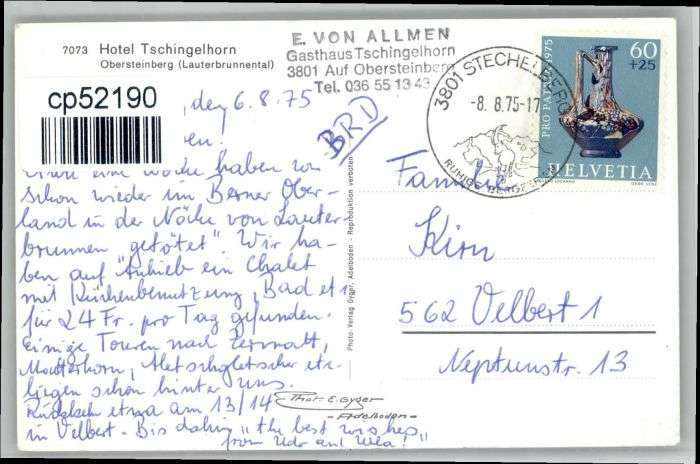 7073 Hotel Tschingelhorn
Obersteinberg (Lauterbrunnental)
E. VON ALLMEN
Gasthaus Tschingelhorn
3801 Auf Obersteinberg
Tel. 036 55 13 43
cp52190
, den 6.8.75
BRD
eine Woche haben wir
schon wieder im Berner Ober-
land in der Nähe von Lauter-
brunnen "getötet". Wir ha-
ben auf Anhieb ein Chalet
mit Küchenbenutzung, Bad etc.
für 24 Fr. pro Tag gefunden.
Einige Touren nach Zermatt,
Matterhorn, Aletschgletscher etc.
liegen schon hinter uns.
Rückkehr etwa am 13/14
in Velbert. Bis dahin "the best wishes"
from Udo and
Photo Verlag Gyger, Adelboden - Reproduktion verboten
Phot. E. Gyger
Adelboden
3801 STECHELBERG
-8. 8.75-17
PRO PATRIA 1975
60
+25
HELVETIA
Familie
Kirn
562 Velbert 1
Neptunstr. 13